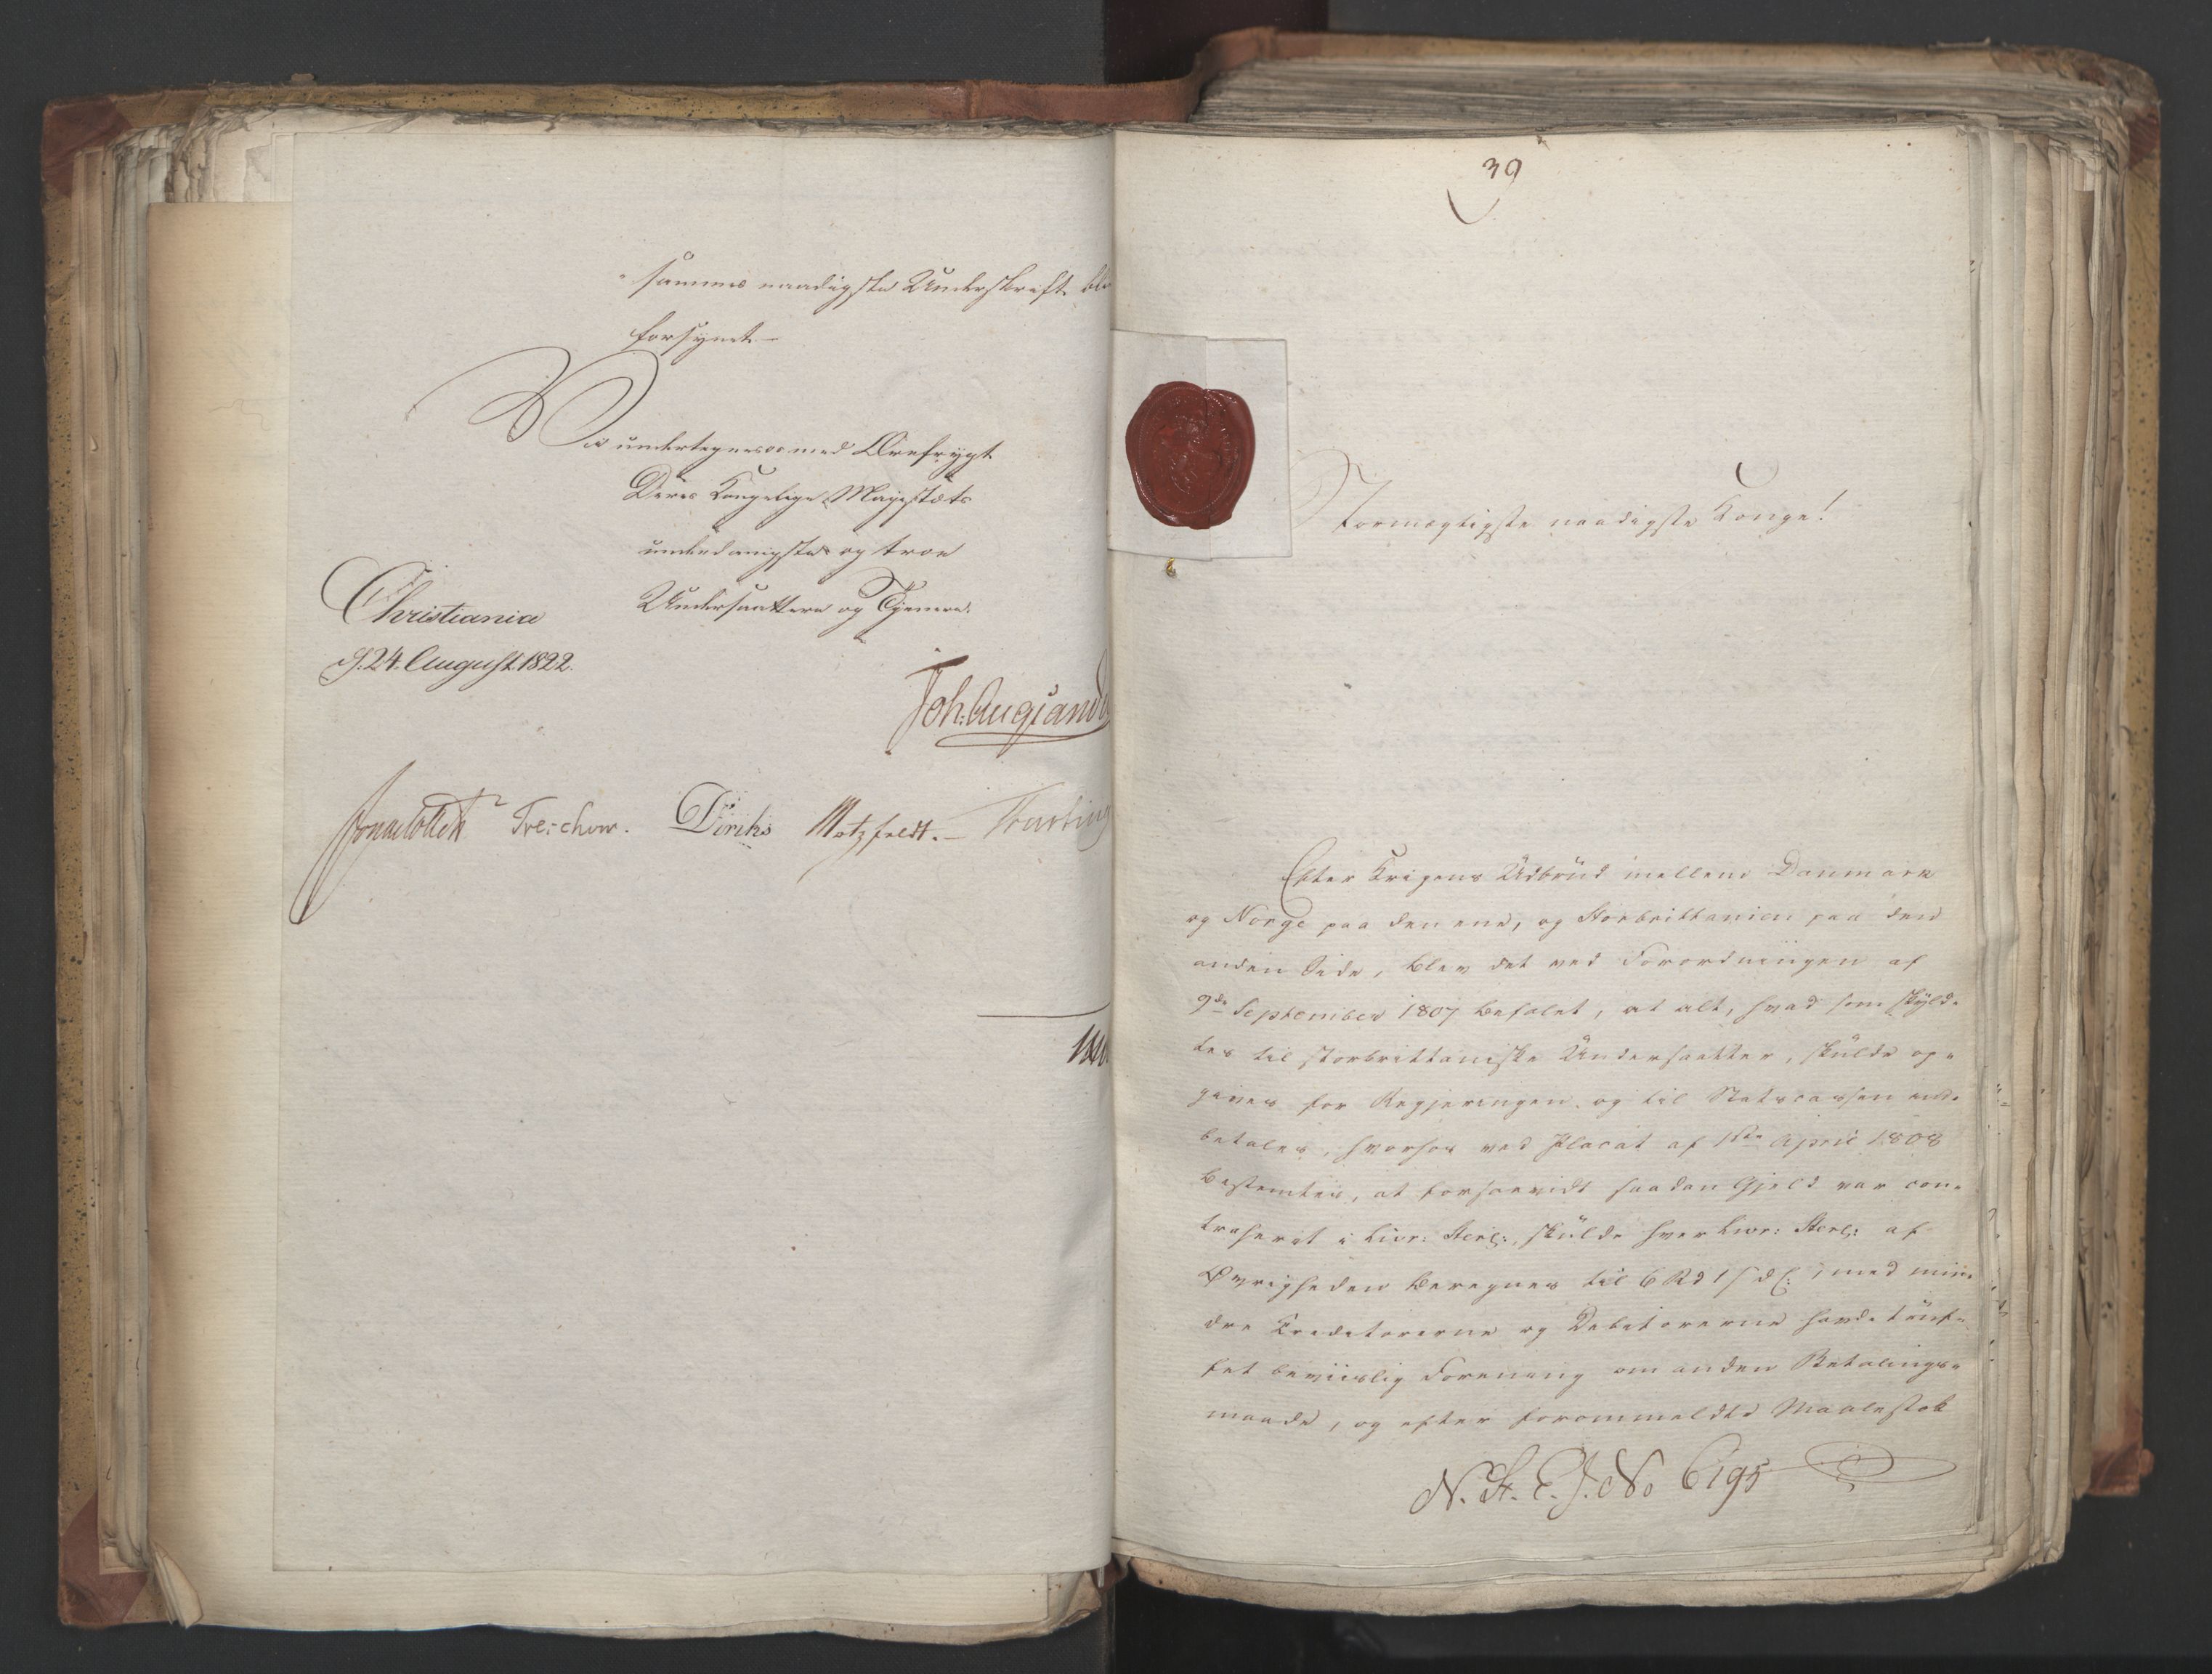 sammes naadigste Underskrift
forsynet.
Vi undertegne os med Ærefrygt
Deres Kongelige Majestæts
underdanigste og troe
Undersaattere og Tjenere.
Christiania
d. 24. August 1822.
Joh: Aug: Sand
Jonas Collett Treschow. Diriks Motzfeldt.
39
Stormægtigste naadigste Konge!
Efter Krigens Udbrud mellem Danmark
og Norge paa den ene, og Storbrittanien paa den
anden Side, blev det ved Forordningen af
9de September 1807 befalet, at alt, hvad som skyld-
tes til storbrittaniske Undersaatter, skulde op-
gives for Regjeringen og til Statscassen ind-
betales, hvorhos ved Placat af 1ste April 1808
bestemtes, at forsaavidt saadan Gjeld var con-
traheret i Livr: Sterl:, skulde hver Livr: Sterl: af
Øvrigheden beregnes til 6 Rd
med min-
dre Creditorerne og Debitorerne havde truf-
fet beviislig Forening om anden Betalings-
maade, og efter forommeldte Maalestok
N. St. C. J. No 6195